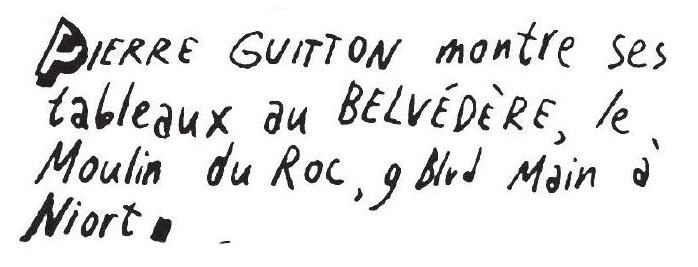 PIERRE GUITTON montre ses
tableaux au BELVÉDÈRE, le
Moulin du Roc, 9 Blvd Main à
Niort.